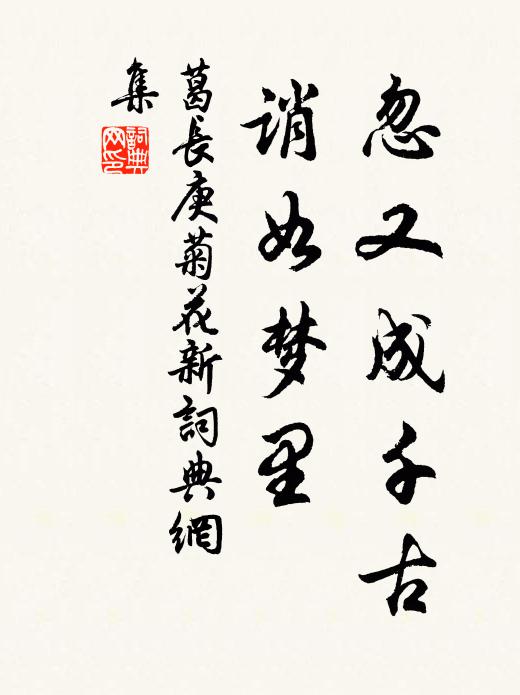 忽又成千古
诮如梦里
葛長庚菊花新詞典網
集
詞典網印